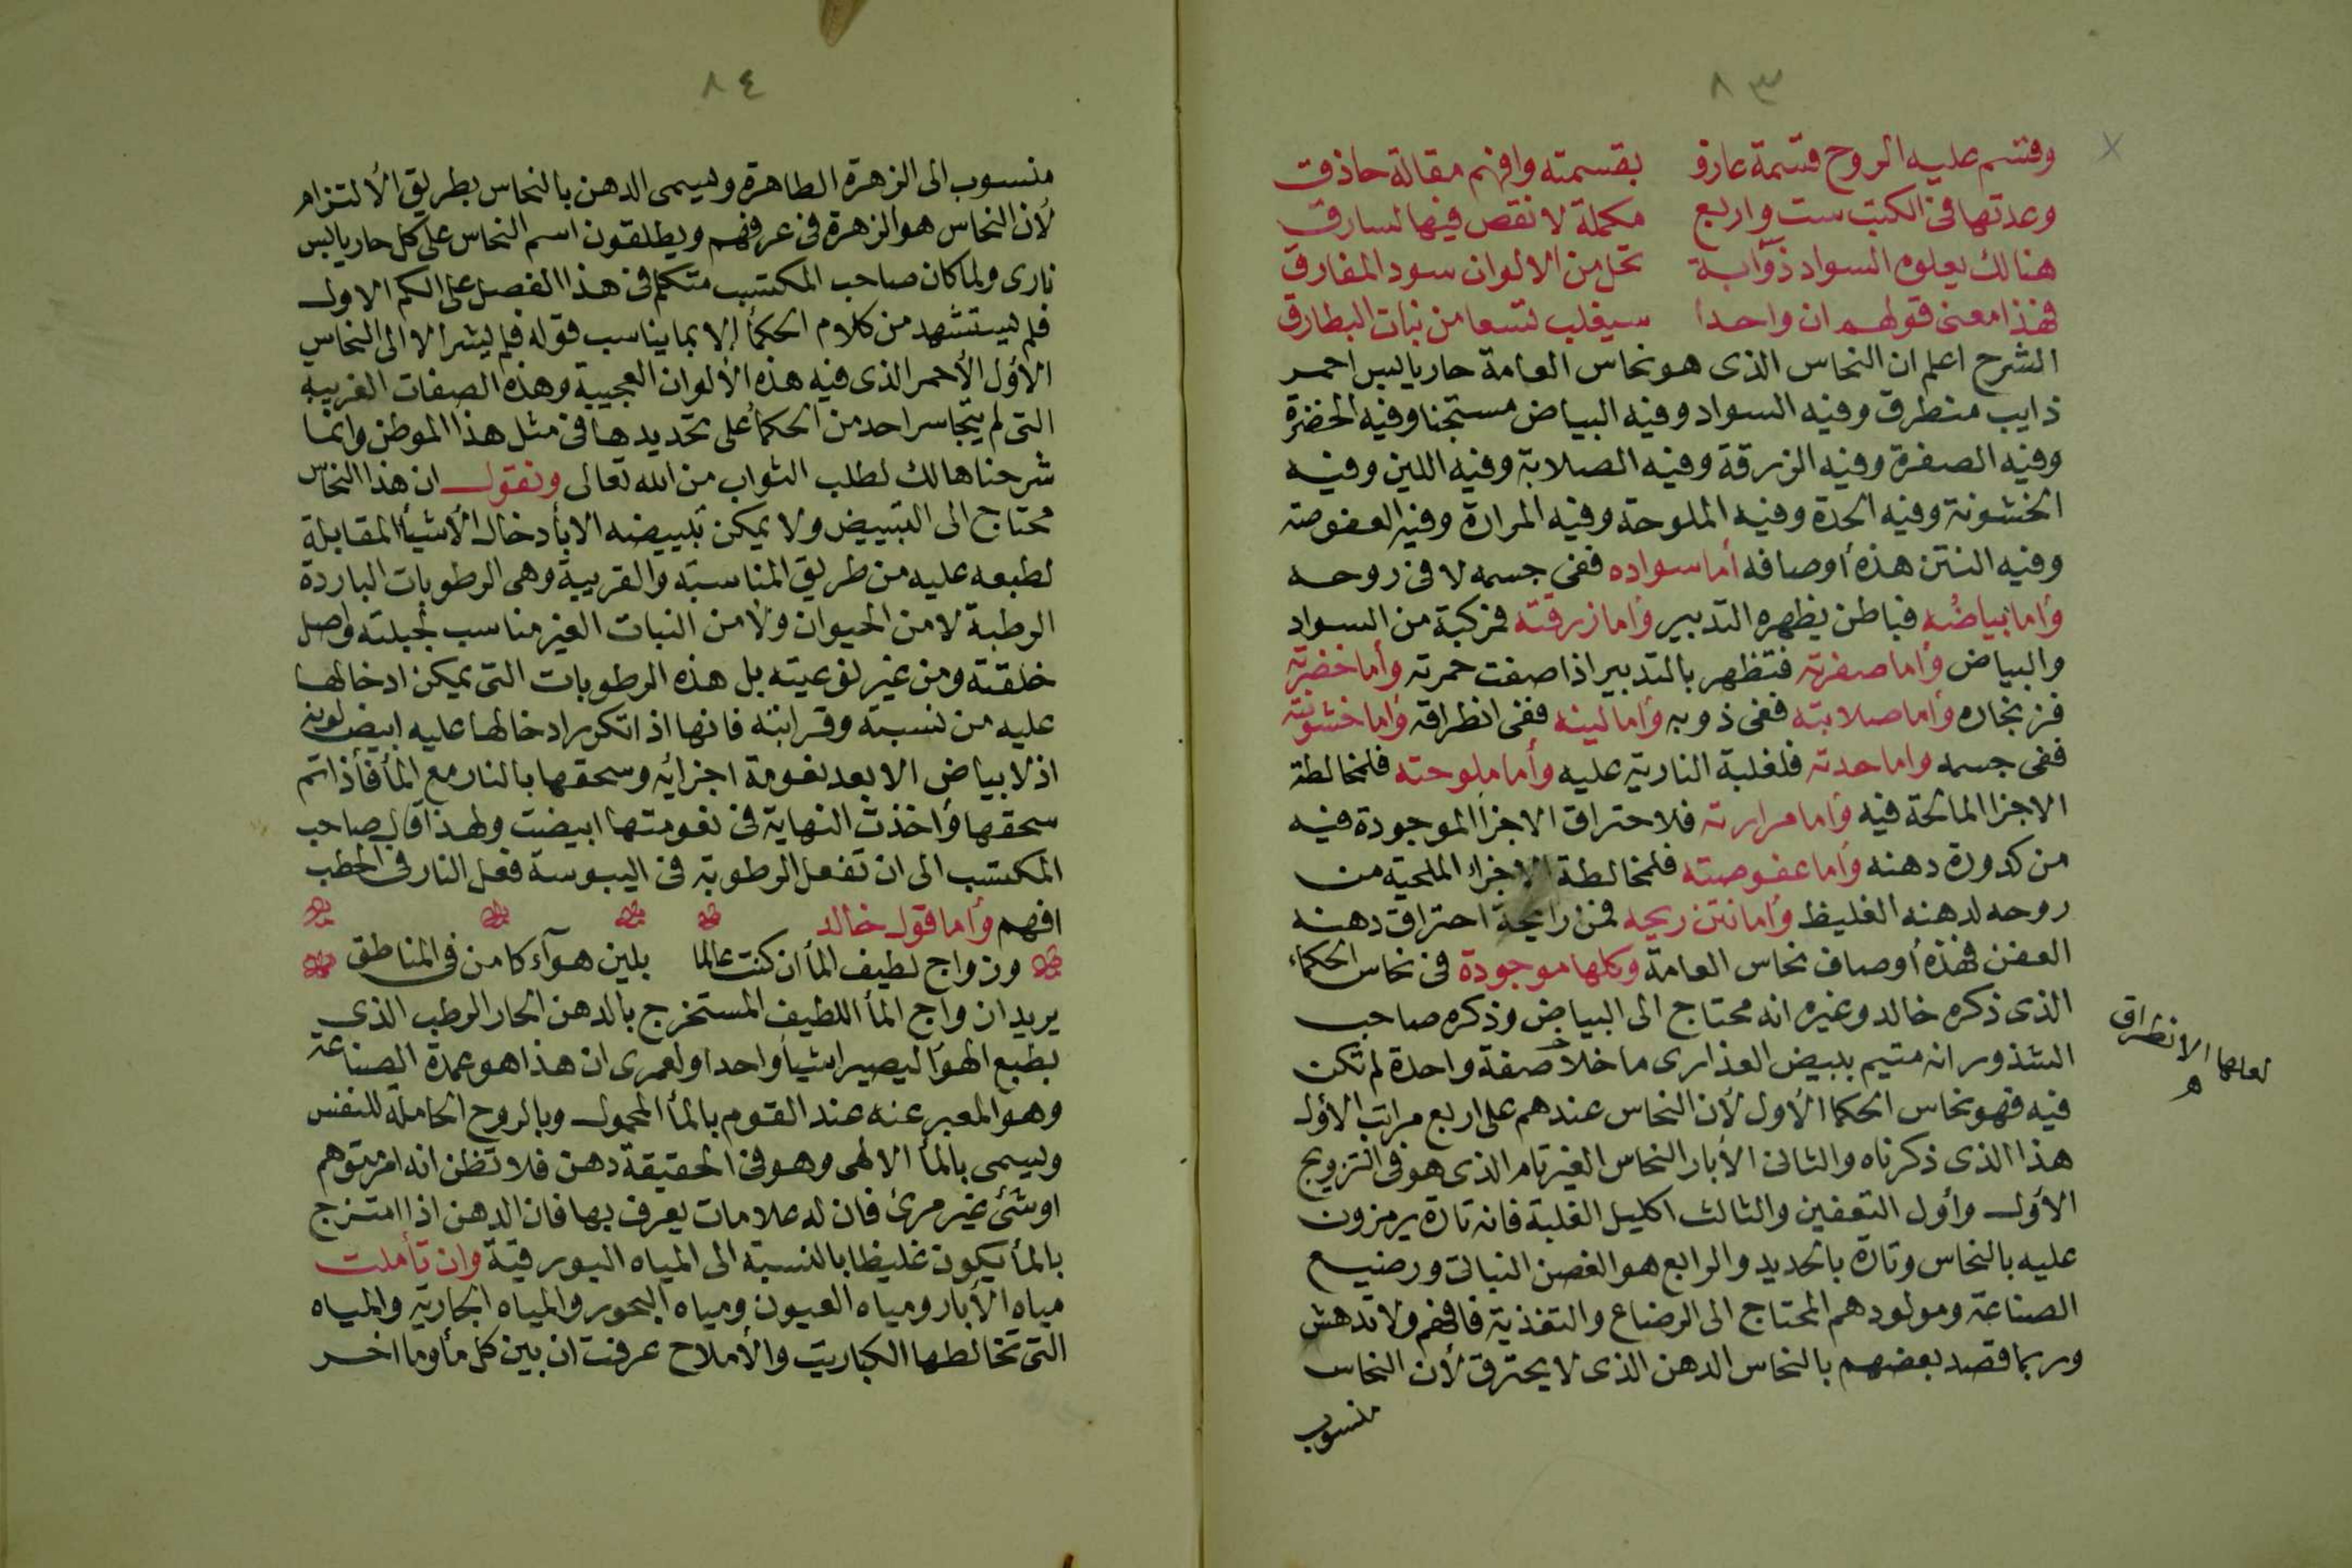 ٨٣
وقسم عليه الروح قسمة عارف بقسمته وافهم مقالة حاذق
وعدتها فى الكتب ست واربع مكملة لا نقص فيها لسارق
هنالك يعلوه السواد ذوآبة تحل من الالوان سود المفارق
فهذا معنى قولهم ان واحدا سيغلب تسعا من بنات البطارق
الشرح اعلم ان النحاس الذى هو نحاس العامة حار يابس احمر
ذايب منطرق وفيه السواد وفيه البياض مستجنا وفيه الخضرة
وفيه الصفرة وفيه الزرقة وفيه الصلابة وفيه اللين وفيه
الخشونة وفيه الحدة وفيه الملوحة وفيه المرارة وفيه العفوصة
وفيه النتن هذه أوصافه أما سواده ففى جسمه لا فى روحه
وأما بياضه فباطن يظهره التدبير وأما زرقته فمركبة من السواد
والبياض وأما صفرته فتظهر بالتدبير اذا صفت حمرته وأما خضرته
فزنجاره وأما صلابته ففى ذوبه وأما لينه ففى انطراقه وأما خشونته
ففى جسمه واما حدته فلغلبة النارية عليه وأما ملوحته فلمخالطة
الاجزا المالحة فيه وأما مرارته فلاحتراق الاجزأ الموجودة فيه
من كدورة دهنه وأما عفوصته فلمخالطة الاجزاء الملحية من
روحه لدهنه الغليظ وأما نتن ريحه فمن رايحة احتراق دهنه
العفن فهذه أوصاف نحاس العامة وكلها موجودة فى نحاس الحكماء
الذى ذكره خالد وغيره انه محتاج الى البياض وذكره صاحب
الشذور انه متيم ببيض العذارى ما خلا صفة واحدة لم تكن
فيه فهو نحاس الحكما الأول لأن النحاس عندهم على اربع مراتب الأول
هذا الذى ذكرناه والثانى الأبار النحاس الغير تام الذى هو فى التزويج
الأول وأول التعفين والثالث اكليل الغلبة فانه تارة يرمزون
عليه بالنحاس وتارة بالحديد والرابع هو الغصن النباتى ورضيع
الصناعة ومولودهم المحتاج الى الرضاع والتغذية فافهم ولا تدهش
وربما قصد بعضهم بالنحاس الدهن الذى لا يحترق لأن النحاس
منسوب
لعلها الانطراق
ه
٨٤
منسوب الى الزهرة الطاهرة ويسمى الدهن بالنحاس بطريق الألتزام
لأن النحاس هو الزهرة فى عرفهم ويطلقون اسم النحاس على كل حار يابس
نارى ولما كان صاحب المكتسب متكلم فى هذا الفصل على الكم الاول
فلم يستشهد من كلام الحكمأ إلا بما يناسب قوله فلم يشر الا الى النحاس
الأول الأحمر الذى فيه هذه الألوان العجيبة وهذه الصفات الغريبه
التى لم يتجاسر احد من الحكمأ على تحديدها فى مثل هذا الموطن وانما
شرحناها لك لطلب الثواب من الله تعالى ونقول ان هذا النحاس
محتاج الى التبييض ولا يمكن تبييضه الا بأدخال الأشيأ المقابلة
لطبعه عليه من طريق المناسبة والقريبية وهى الرطوبات الباردة
الرطبة لا من الحيوان ولا من النبات الغير مناسب لجبلته واصل
خلقته ومن غير نوعيته بل هذه الرطوبات التى يمكن ادخالها
عليه من نسبته وقرابته فانها اذ اتكرر ادخالها عليه ابيض لونه
اذ لا بياض الا بعد نعومة اجزائه وسحقها بالنار مع المأ فأذا تم
سحقها وأخذت النهاية فى نعومتها ابيضت ولهذا قال صاحب
المكتسب الى ان تفعل الرطوبة فى اليبوسة فعل النار فى الحطب
افهم وأما قول خالد
وزواج لطيف المأ ان كنت عالما بلين هوآء كامن فى المناطق
يريد ان واج المأ اللطيف المستخرج بالدهن الحار الرطب الذى
بطبع الهوأ ليصيرا شيأ واحدا ولعمرى ان هذا هو عمدة الصناعة
وهو المعبر عنه عند القوم بالمأ المحمول وبالروح الحاملة للنفس
ويسمى بالمأ الالهى وهو فى الحقيقة دهن فلا تظن انه امر متوهم
اوشئ غير مرئ فان له علامات يعرف بها فان الدهن اذا امتزج
بالمأ يكون غليظا بالنسبة الى المياه البورقية وان تأملت
مياه الأبار ومياه العيون ومياه البحور والمياه الجارية والمياه
التى تخالطها الكباريت والأملاح عرفت ان بين كل مأ وما اخر